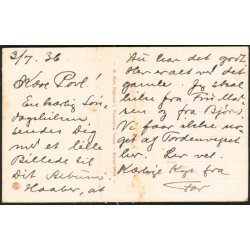 3/7. 36
Kære Povl!
En kærlig Søn-
dagshilsen
sendes Dig
med et lille
Billede til
Dit Album.
Haaber, at
Du har det godt.
Her er alt ved det
gamle. Jeg skal
hilse fra
og fra Bjørn.
Vi faar ikke no-
get af Tordenvejret
her. Lev vel.
Kærlig Kys fra
Far